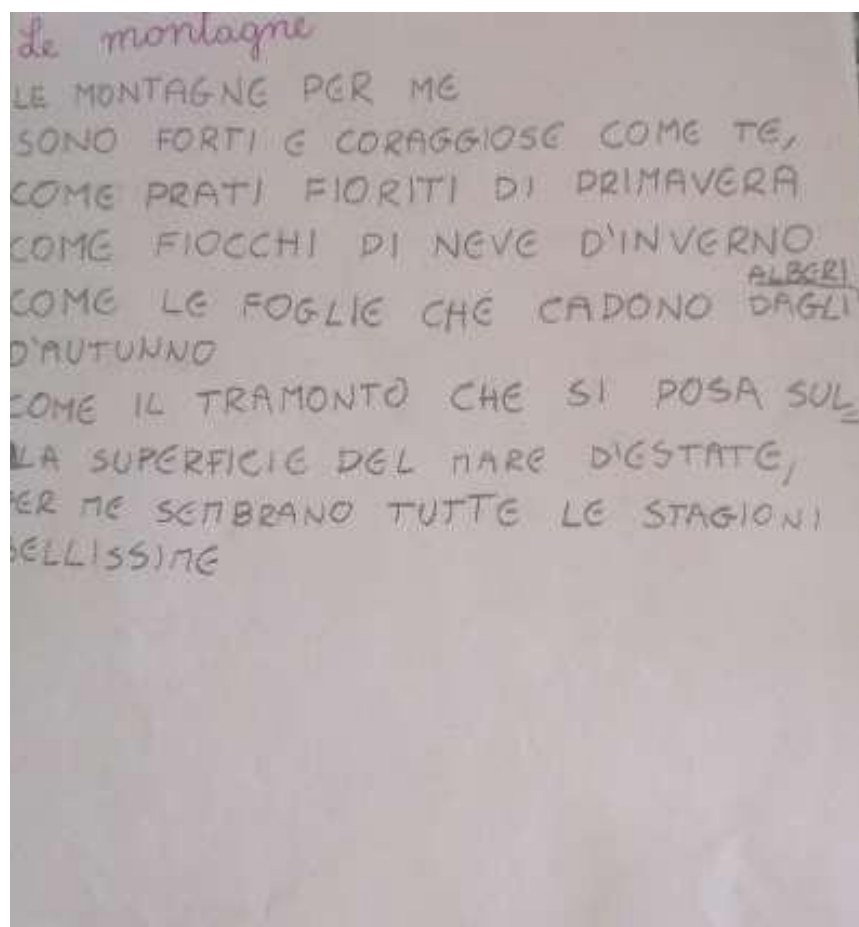 Le montagne
LE MONTAGNE PER ME
SONO FORTI E CORAGGIOSE COME TE,
COME PRATI FIORITI DI PRIMAVERA
COME FIOCCHI DI NEVE D'INVERNO
ALBERI
COME LE FOGLIE CHE CADONO DAGLI
D'AUTUNNO
COME IL TRAMONTO CHE SI POSA SUL=
LA SUPERFICIE DEL MARE D'ESTATE,
ER ME SEMBRANO TUTTE LE STAGIONI
BELLISSIME